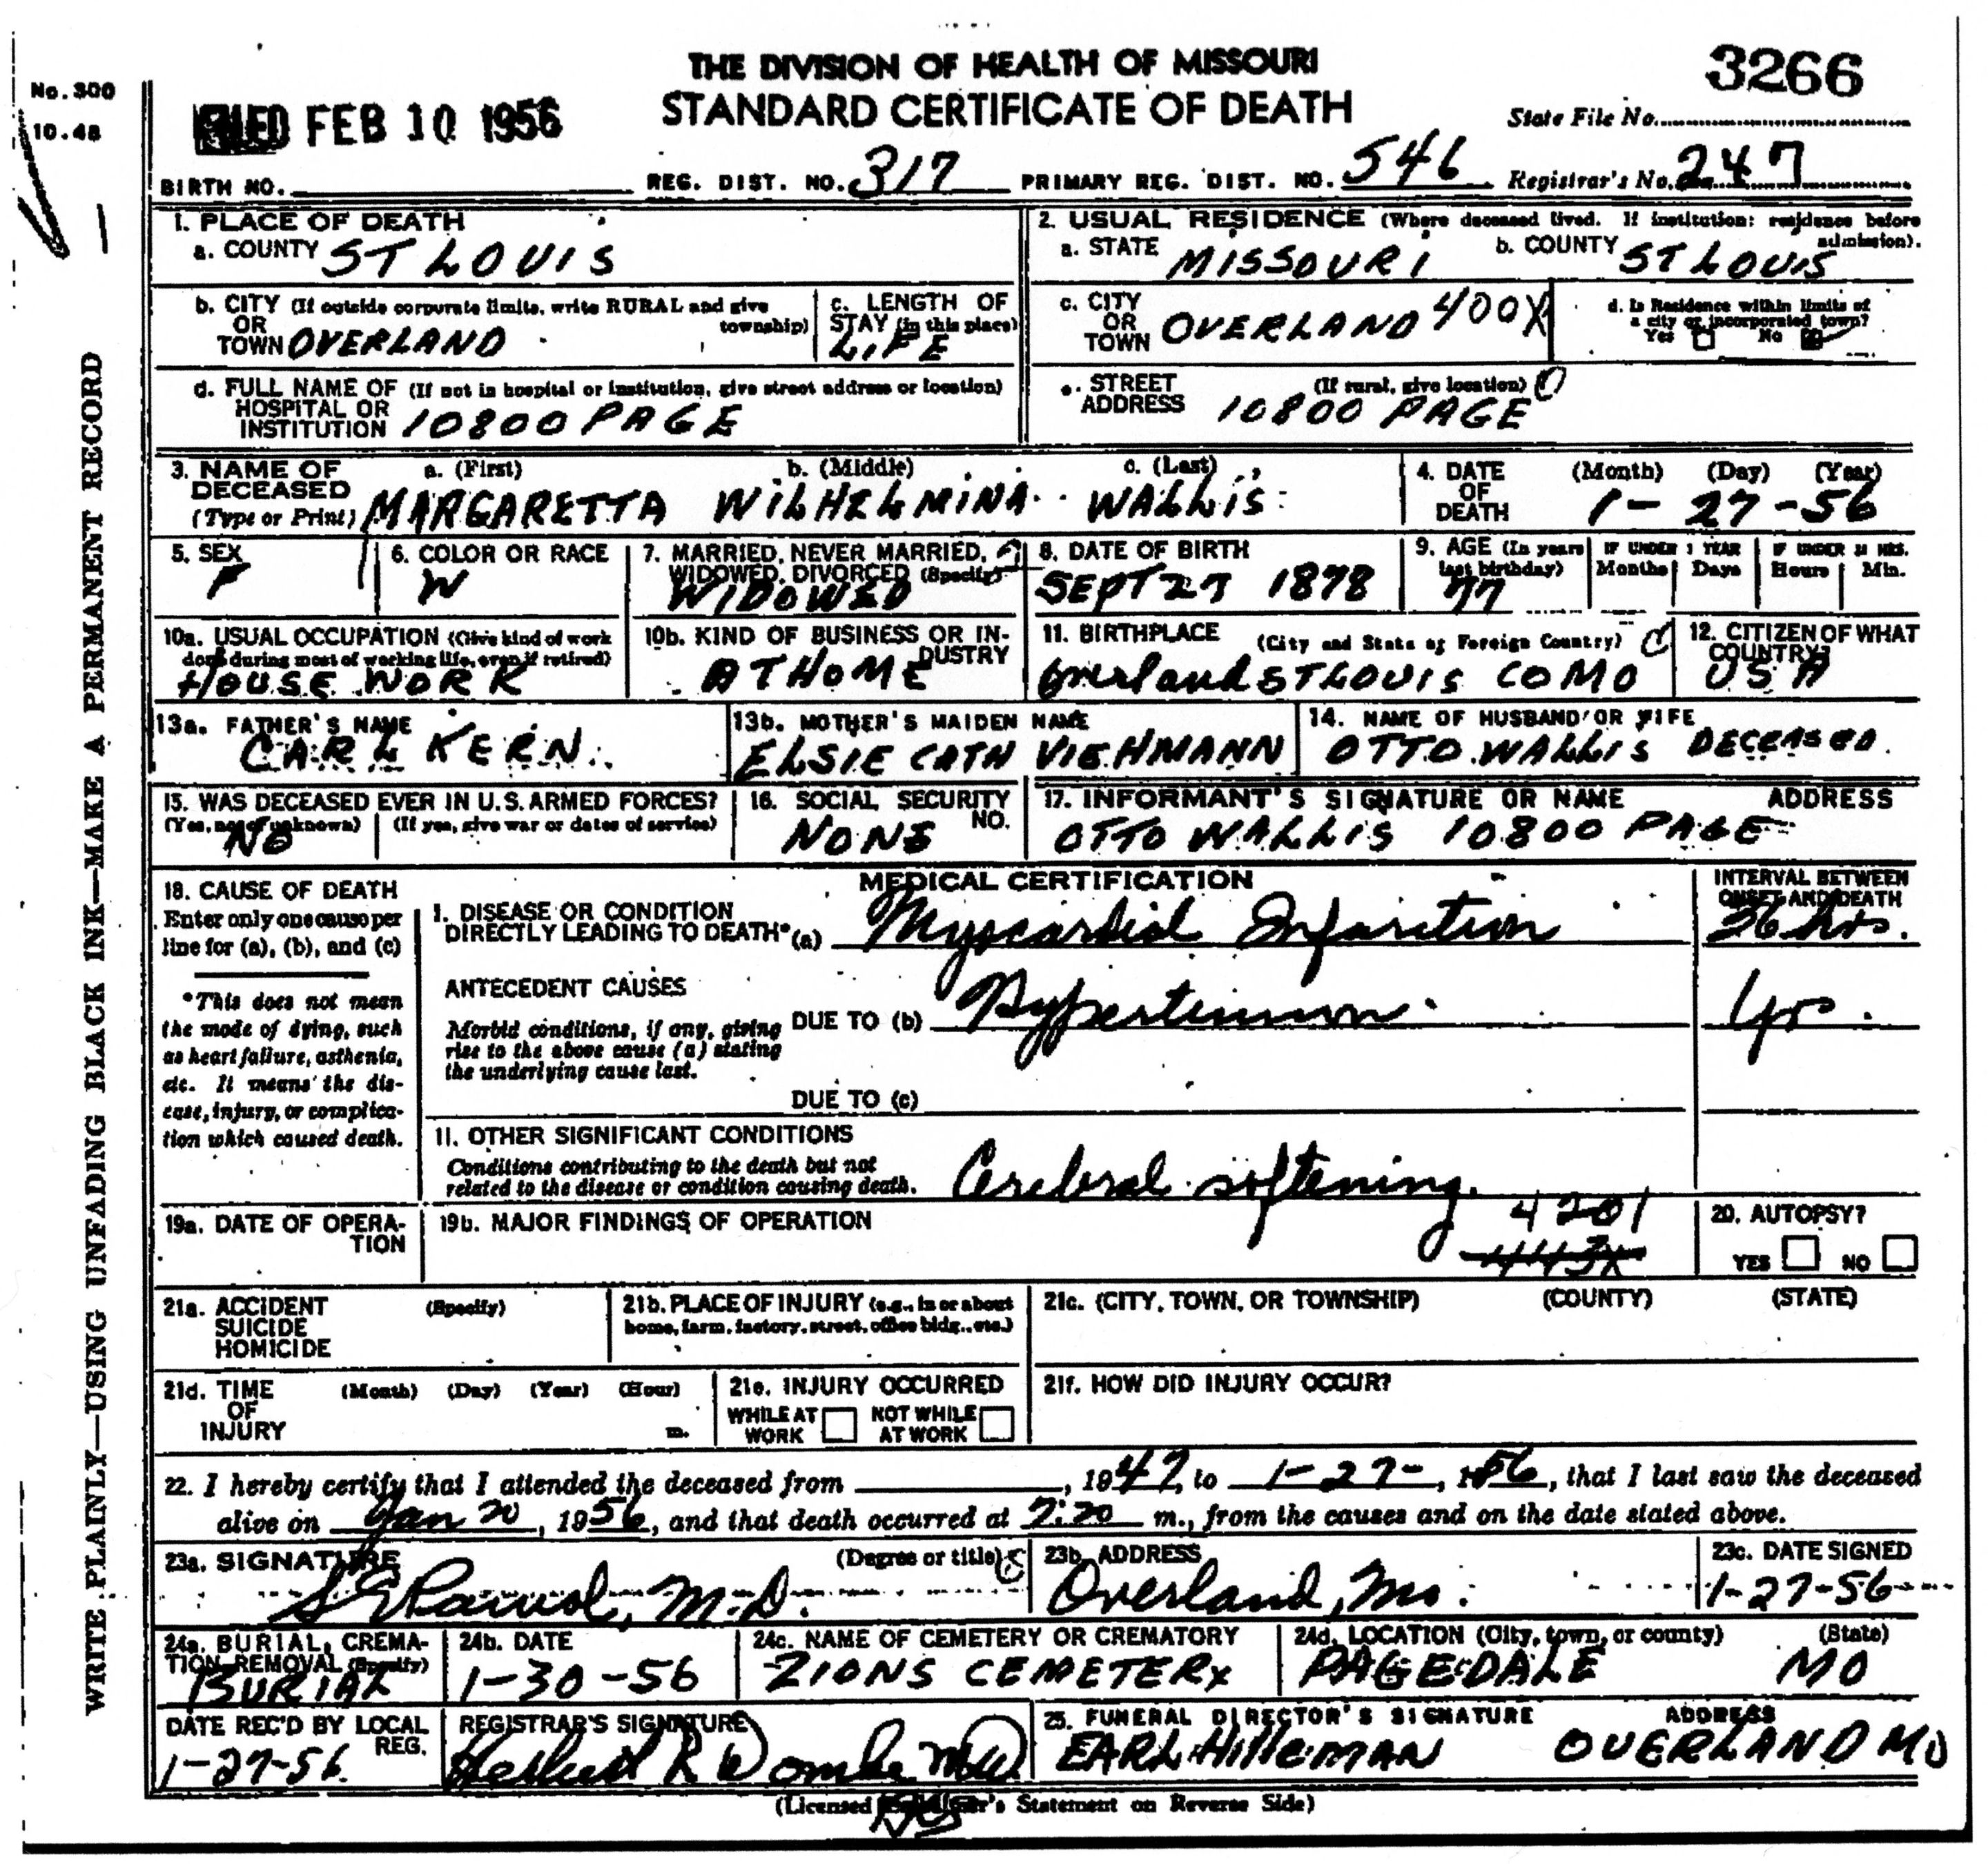 THE DIVISION OF HEALTH OF MISSOURI
STANDARD CERTIFICATE OF DEATH
3266
State File No.
No. 300
10.48
FILED FEB 10 1956
BIRTH NO. REG. DIST. NO. 317 PRIMARY REG. DIST. NO. 546 Registrar's No. 247
WRITE PLAINLY—USING UNFADING BLACK INK—MAKE A PERMANENT RECORD
1. PLACE OF DEATH
a. COUNTY ST LOUIS
2. USUAL RESIDENCE (Where deceased lived. If institution: residence before admission).
a. STATE MISSOURI b. COUNTY ST LOUIS
b. CITY (If outside corporate limits, write RURAL and give township)
OR
TOWN OVERLAND
c. LENGTH OF
STAY (in this place)
LIFE
c. CITY
OR
TOWN OVERLAND 400X
d. Is Residence within limits of
a city or incorporated town?
Yes No
d. FULL NAME OF (If not in hospital or institution, give street address or location)
HOSPITAL OR
INSTITUTION 10800 PAGE
e. STREET (If rural, give location)
ADDRESS 10800 PAGE
3. NAME OF a. (First) b. (Middle) c. (Last)
DECEASED
(Type or Print) MARGARETTA WILHELMINA WALLIS
4. DATE (Month) (Day) (Year)
OF
DEATH 1-27-56
5. SEX
F
6. COLOR OR RACE
W
7. MARRIED, NEVER MARRIED,
WIDOWED, DIVORCED (Specify)
WIDOWED
8. DATE OF BIRTH
SEPT 27 1878
9. AGE (In years
last birthday)
77
IF UNDER 1 YEAR
Months Days
IF UNDER 24 HRS.
Hours Min.
10a. USUAL OCCUPATION (Give kind of work
done during most of working life, even if retired)
HOUSE WORK
10b. KIND OF BUSINESS OR INDUSTRY
AT HOME
11. BIRTHPLACE (City and State or Foreign Country)
Overland ST LOUIS CO MO
12. CITIZEN OF WHAT
COUNTRY?
USA
13a. FATHER'S NAME
CARL KERN
13b. MOTHER'S MAIDEN NAME
ELSIE CATH VIEHMANN
14. NAME OF HUSBAND OR WIFE
OTTO WALLIS DECEASED
15. WAS DECEASED EVER IN U.S. ARMED FORCES?
(Yes, no, or unknown) (If yes, give war or dates of service)
NO
16. SOCIAL SECURITY
NO.
NONE
17. INFORMANT'S SIGNATURE OR NAME ADDRESS
OTTO WALLIS 10800 PAGE
18. CAUSE OF DEATH
Enter only one cause per
line for (a), (b), and (c)
*This does not mean
the mode of dying, such
as heart failure, asthenia,
etc. It means the dis-
ease, injury, or complica-
tion which caused death.
MEDICAL CERTIFICATION
I. DISEASE OR CONDITION
DIRECTLY LEADING TO DEATH* (a) Myocardial Infarction
INTERVAL BETWEEN
ONSET AND DEATH
36 hrs.
ANTECEDENT CAUSES
Morbid conditions, if any, giving
rise to the above cause (a) stating
the underlying cause last.
DUE TO (b) Hypertension. yrs.
DUE TO (c)
II. OTHER SIGNIFICANT CONDITIONS
Conditions contributing to the death but not
related to the disease or condition causing death.
Cerebral softening.
19a. DATE OF OPERA-
TION
19b. MAJOR FINDINGS OF OPERATION
4201
443X
20. AUTOPSY?
YES NO
21a. ACCIDENT (Specify)
SUICIDE
HOMICIDE
21b. PLACE OF INJURY (e.g., in or about
home, farm, factory, street, office bldg., etc.)
21c. (CITY, TOWN, OR TOWNSHIP) (COUNTY) (STATE)
21d. TIME (Month) (Day) (Year) (Hour)
OF
INJURY m.
21e. INJURY OCCURRED
WHILE AT WORK NOT WHILE AT WORK
21f. HOW DID INJURY OCCUR?
22. I hereby certify that I attended the deceased from , 1947, to 1-27-, 1956, that I last saw the deceased
alive on Jan 20, 1956, and that death occurred at 7:20 m., from the causes and on the date stated above.
23a. SIGNATURE (Degree or title)
M.D.
23b. ADDRESS
Overland, Mo.
23c. DATE SIGNED
1-27-56
24a. BURIAL, CREMA-
TION, REMOVAL (Specify)
BURIAL
24b. DATE
1-30-56
24c. NAME OF CEMETERY OR CREMATORY
ZIONS CEMETERY
24d. LOCATION (City, town, or county) (State)
PAGEDALE MO
DATE REC'D BY LOCAL
REG.
1-27-56
REGISTRAR'S SIGNATURE
Herbert R Domke MD
25. FUNERAL DIRECTOR'S SIGNATURE ADDRESS
EARL HILLEMAN OVERLAND MO
(Licensed Embalmer's Statement on Reverse Side)